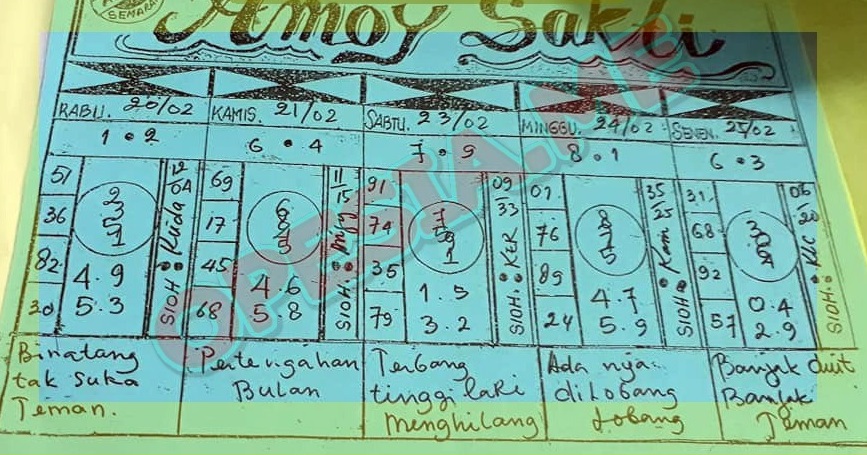 SEMARA
Amoy Sakti
RABU. 20/02
KAMIS. 21/02
SABTU. 23/02
MINGGU. 24/02
SENEN. 25/02
1 • 2
6 • 4
7 • 9
8 • 1
6 • 3
51
36
82
20
4.9
5.3
SIOH: Kuda
69
17
45
68
4.6
5.8
11/15
SIOH:
91
74
35
79
1.5
3.2
09/33
SIOH:
01
76
89
24
4.7
5.9
35/25
SIOH:
31
68
92
57
0.4
2.9
SIOH:
OPESIA.ME
Binatang
tak suka
Teman.
Pertengahan
Bulan
Terbang
tinggi laki
Menghilang
Ada nya
dilobang
Lobang
Banyak duit
Banyak
Teman